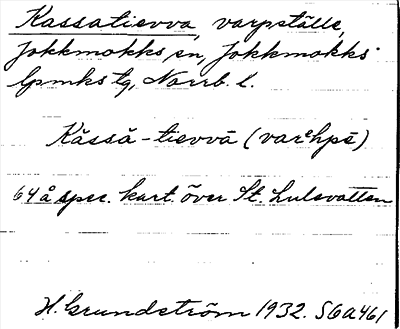 Kassatievva, varpställe,
Jokkmokks sn, Jokkmokks
lpmks tg, Norrb. l.
Kåsså-tievvā (varᵉhpē)
64 å spec. kart. över St. Lulevatten
H. Grundström 1932. S6a461